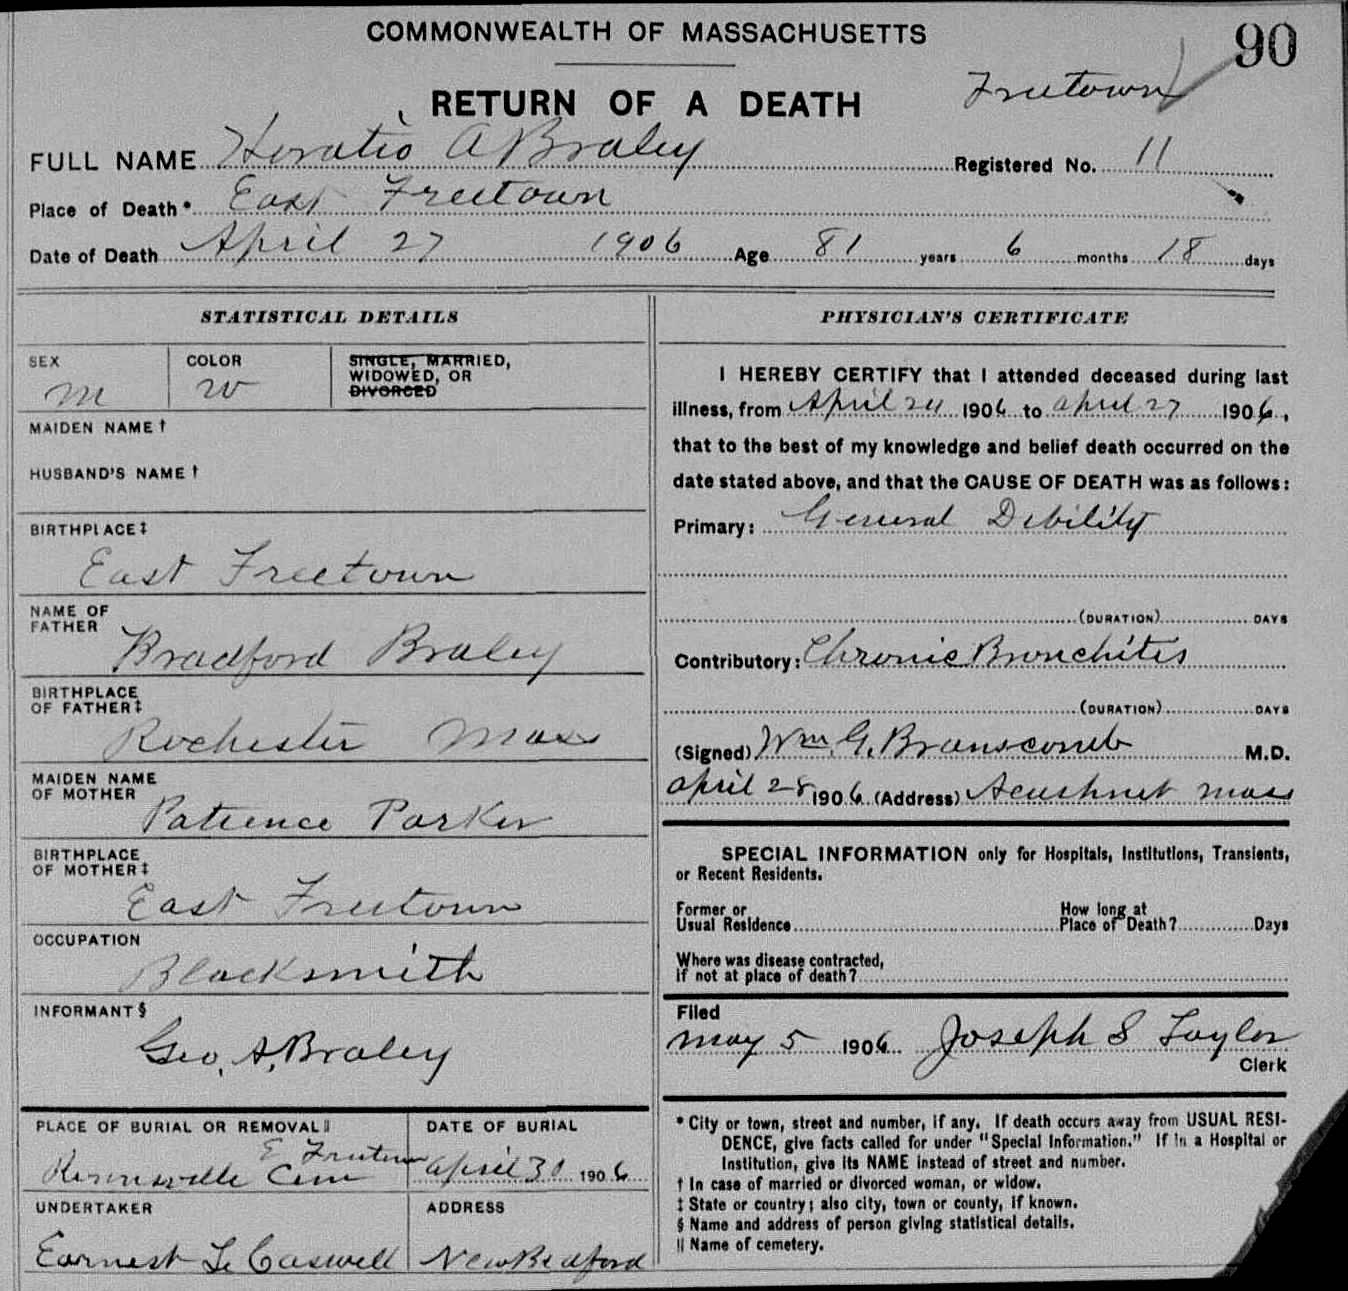 COMMONWEALTH OF MASSACHUSETTS
90
RETURN OF A DEATH
Freetown
FULL NAME Horatio A Braley Registered No. 11
Place of Death* East Freetown
Date of Death April 27 1906 Age 81 years 6 months 18 days
STATISTICAL DETAILS
SEX
M
COLOR
W
SINGLE, MARRIED,
WIDOWED, OR
DIVORCED
MAIDEN NAME †
HUSBAND'S NAME †
BIRTHPLACE ‡
East Freetown
NAME OF
FATHER
Bradford Braley
BIRTHPLACE
OF FATHER ‡
Rochester Mass
MAIDEN NAME
OF MOTHER
Patience Parker
BIRTHPLACE
OF MOTHER ‡
East Freetown
OCCUPATION
Blacksmith
INFORMANT §
Geo. A. Braley
PLACE OF BURIAL OR REMOVAL ||
E Freetown
Cem
DATE OF BURIAL
April 30 1906
UNDERTAKER
Earnest L Caswell
ADDRESS
New Bedford
PHYSICIAN'S CERTIFICATE
I HEREBY CERTIFY that I attended deceased during last
illness, from April 24 1906 to april 27 1906,
that to the best of my knowledge and belief death occurred on the
date stated above, and that the CAUSE OF DEATH was as follows:
Primary: General Debility
(DURATION) DAYS
Contributory: Chronic Bronchitis
(DURATION) DAYS
(Signed) Wm. G. Branscomb M.D.
april 28 1906 (Address) Acushnet mass
SPECIAL INFORMATION only for Hospitals, Institutions, Transients,
or Recent Residents.
Former or
Usual Residence
How long at
Place of Death? Days
Where was disease contracted,
if not at place of death?
Filed
may 5 1906 Joseph S Taylor
Clerk
* City or town, street and number, if any. If death occurs away from USUAL RESI-
DENCE, give facts called for under "Special Information." If in a Hospital or
Institution, give its NAME instead of street and number.
† In case of married or divorced woman, or widow.
‡ State or country; also city, town or county, if known.
§ Name and address of person giving statistical details.
|| Name of cemetery.